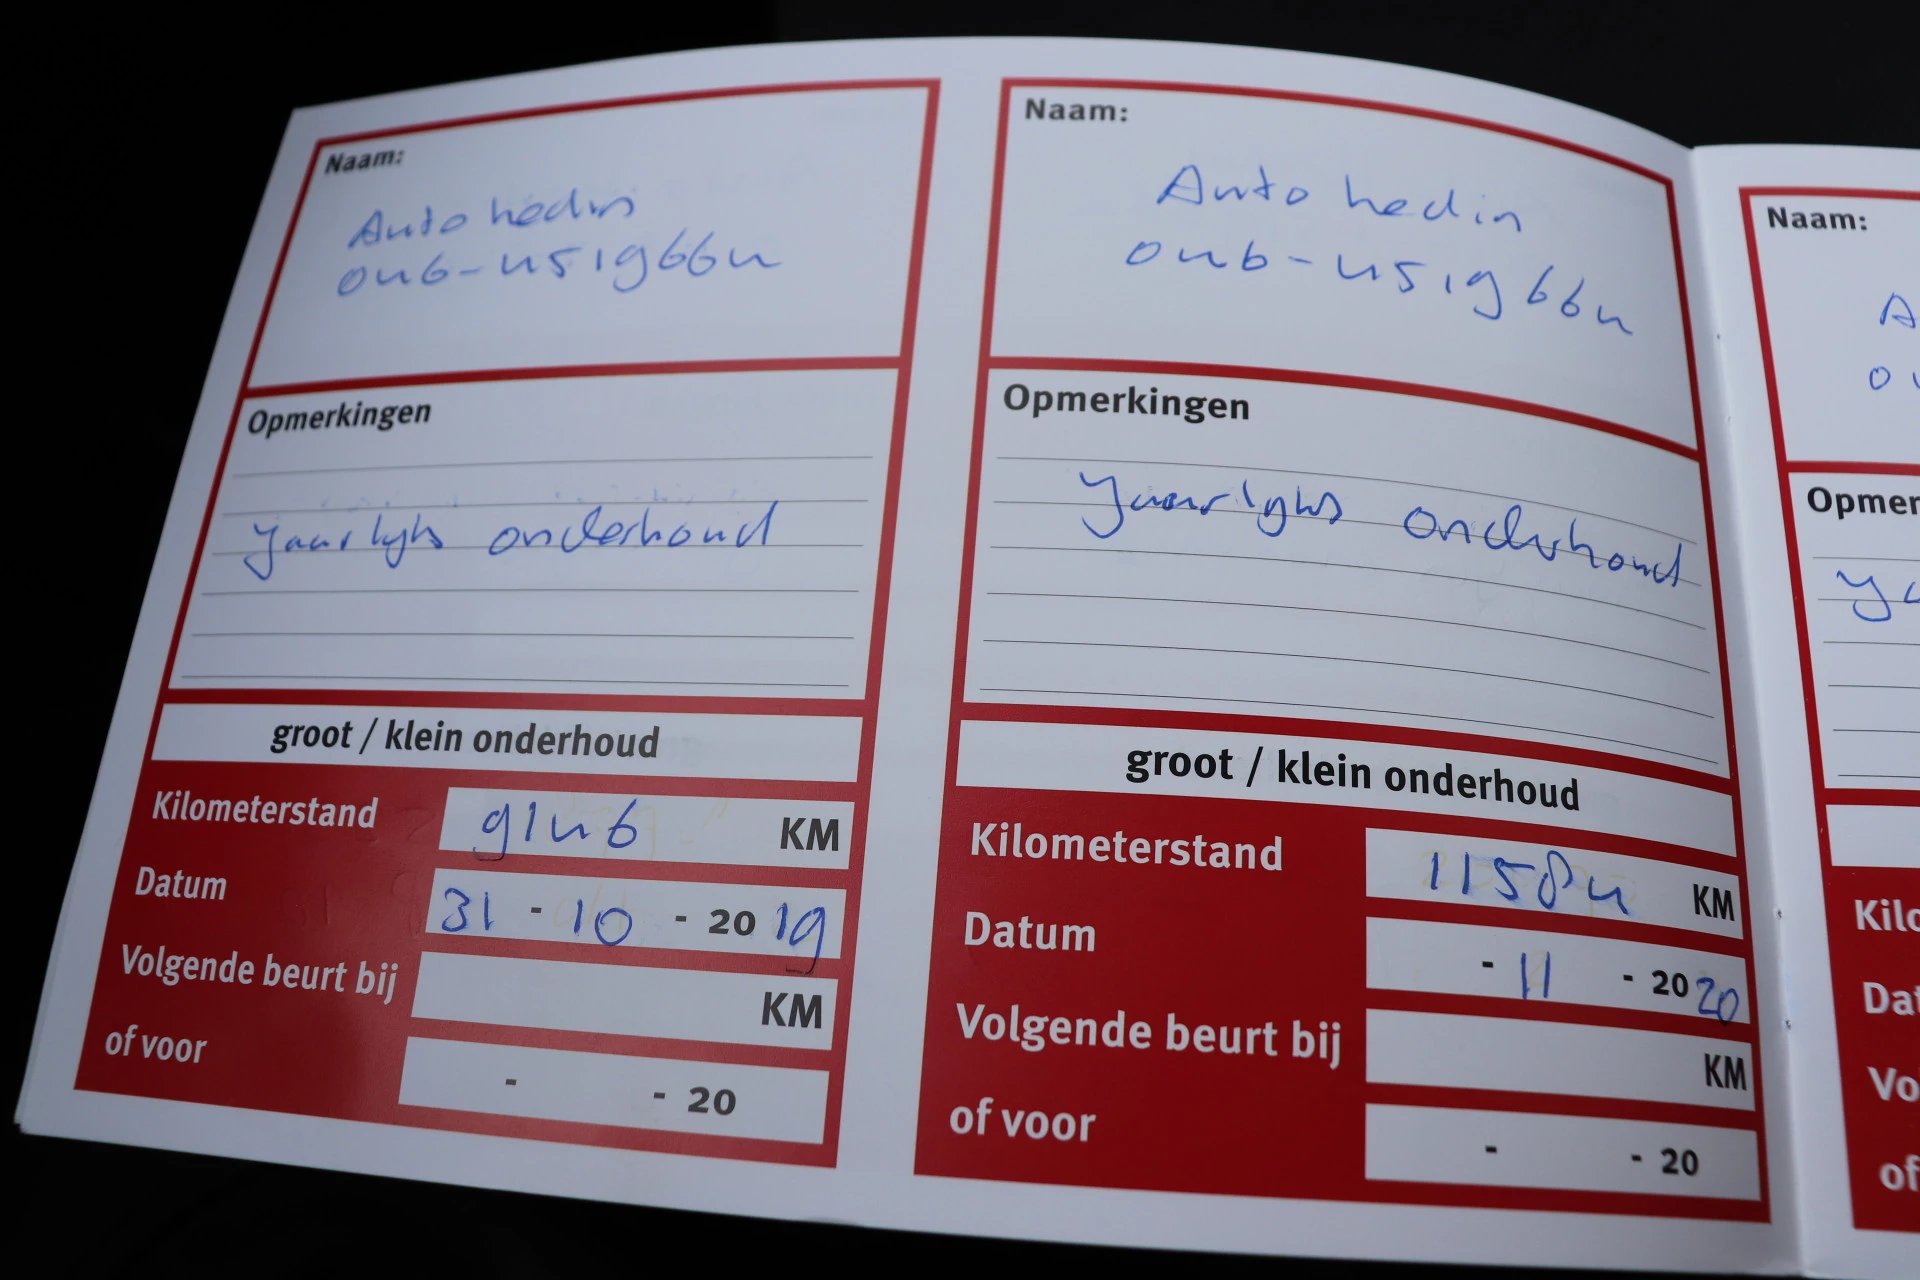 Naam:
Auto hedin
046-4519664
Opmerkingen
Jaarlyks onderhoud
groot / klein onderhoud
Kilometerstand 9146 KM
Datum 31 - 10 - 20 19
Volgende beurt bij KM
of voor - - 20
Naam:
Auto hedin
046-4519664
Opmerkingen
Jaarlyks onderhoud
groot / klein onderhoud
Kilometerstand 11584 KM
Datum - 11 - 20 20
Volgende beurt bij KM
of voor - - 20
Naam:
A
0
Opmer
Kilo
Dat
Vo
of